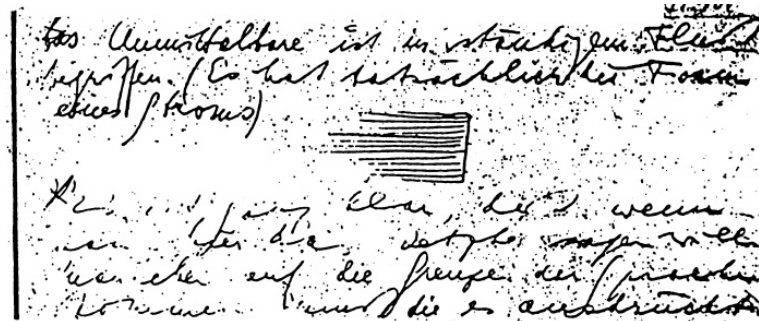 Das Unmittelbare ist in ständigem Fluß
begriffen. (Es hat tatsächlich die Form
eines Stroms)
ganz klar, daß wenn
Letzte sagen will
eben auf die Grenze der Sprache
kommen muß die es ausdrückt